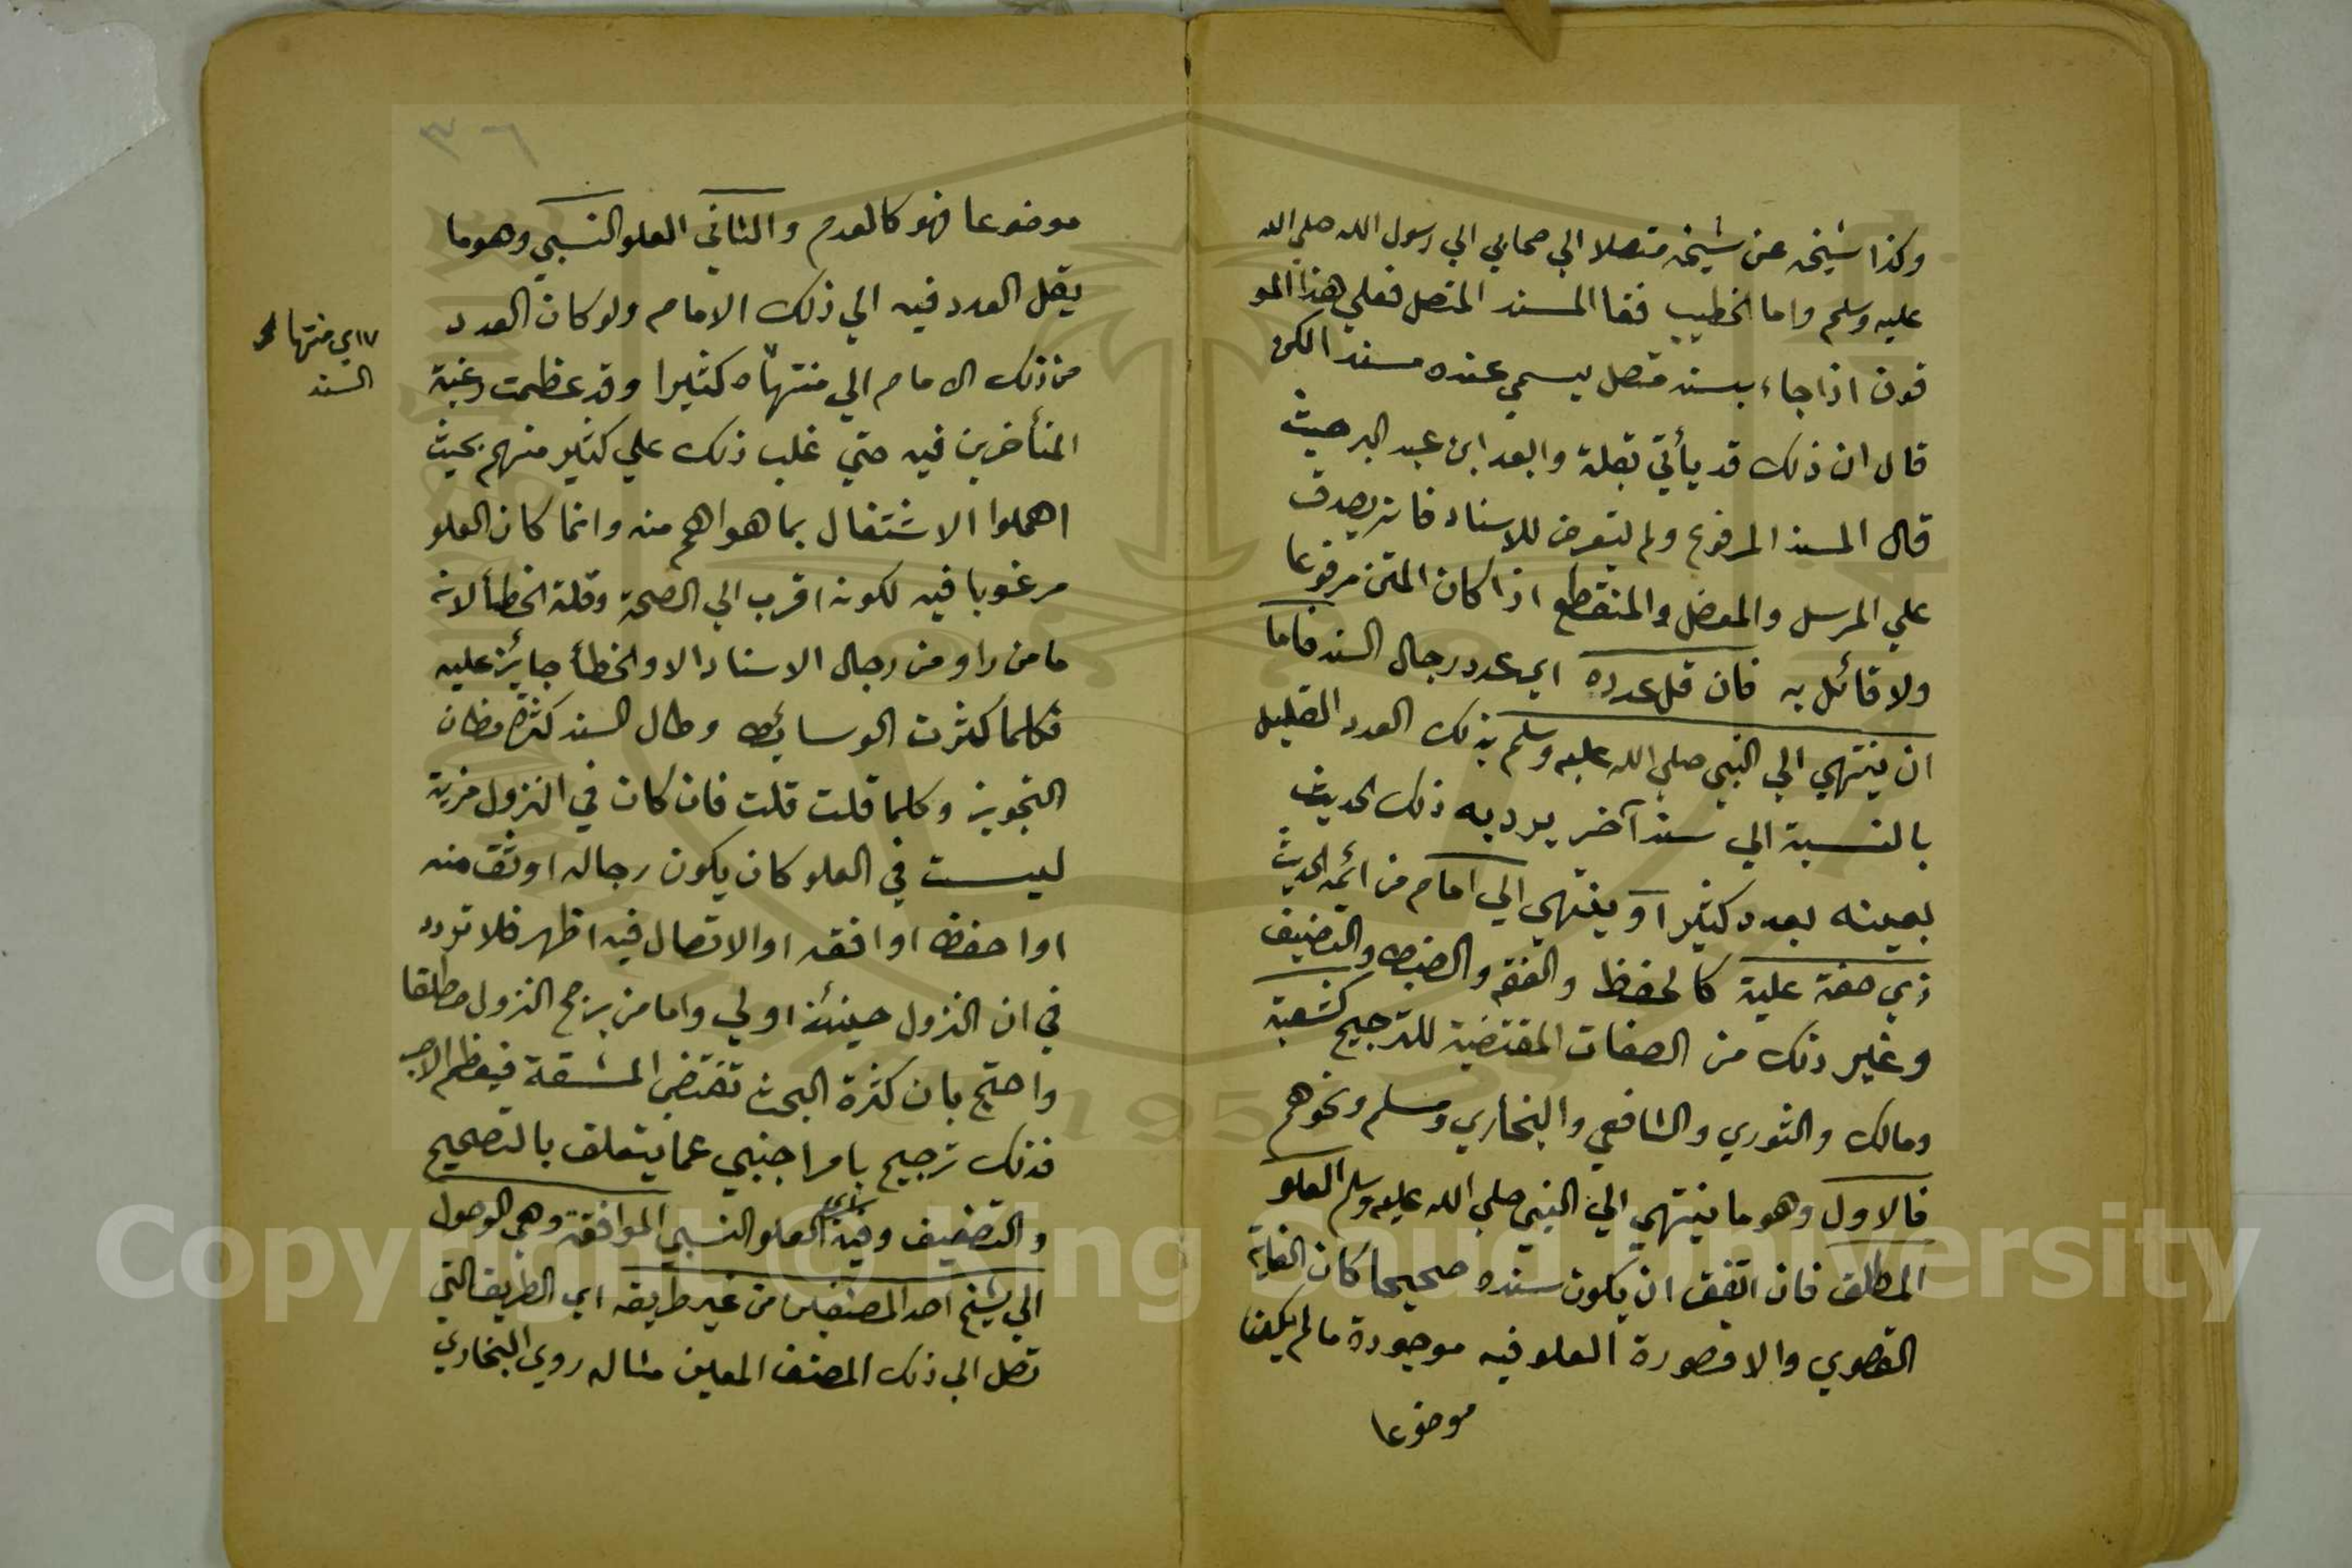 وكذا شيخه عن شيخه متصلا الي صحابي الي رسول الله صلي الله
عليه وسلم واما الخطيب فقا المسند المتصل فعلي هذا المو
قوف اذا جاء بسند متصل يسمي عنده مسندا لكن
قال ان ذلك قد يأتي بقلة وابعد ابن عبد البر حيث
قال المسند المرفوع ولم يتعرض للاسناد فانه يصدق
علي المرسل والمعضل والمنقطع اذا كان المتن مرفوعا
ولا قائل به فان قل عدده اي عدد رجال السند فاما
ان ينتهي الي النبي صلي الله عليه وسلم بذلك العدد القليل
بالنسبة الي سند آخر يرد به ذلك الحديث
بعينه بعدد كثير او ينتهي الي امام من ائمه الحديث
ذي صفة علية كالحفظ والفقه والضبط والتصنيف
وغير ذلك من الصفات المقتضية للترجيح كشعبة
ومالك والثوري والشافعي والبخاري ومسلم ونحوهم
فالاول وهو ما ينتهي الي النبي صلي الله عليه وسلم العلو
المطلق فان اتفق ان يكون سنده صحيحا كان الغاية
القصوي والا فصورة العلو فيه موجودة ما لم يكن
موضوعا
٣٦
موضوعا فهو كالعدم والثاني العلو النسبي وهو ما
يقل العدد فيه الي ذلك الامام ولو كان العدد
من ذلك الامام الي منتهاه كثيرا وقد عظمت رغبة
المتأخرين فيه حتي غلب ذلك علي كثير منهم بحيث
اهملوا الاشتغال بما هو اهم منه وانما كان العلو
مرغوبا فيه لكونه اقرب الي الصحة وقلة الخطأ لانه
ما من راو من رجال الاسناد الا والخطأ جايز عليه
فكلما كثرت الوسائط وطال السند كثرة مظان
التجويز وكلما قلت قلت فان كان في النزول مزية
ليست في العلو كان يكون رجاله اوثق منه
او احفظ او افقه او الاتصال فيه اظهر فلا تردد
في ان النزول حينئذ اولي واما من يرجح النزول مطلقا
واحتج بان كثرة البحث تقتضي المشقة فيعظم الاجر
فذلك ترجيح بامر اجنبي عما يتعلق بالتصحيح
والتضعيف وفيه اي العلو النسبي الموافقة وهي الوصول
الي شيخ احد المصنفين من غير طريقه اي الطريق التي
تصل الي ذلك المصنف المعين مثاله روي البخاري
اي منتها
السند
Copyright © King Saud University